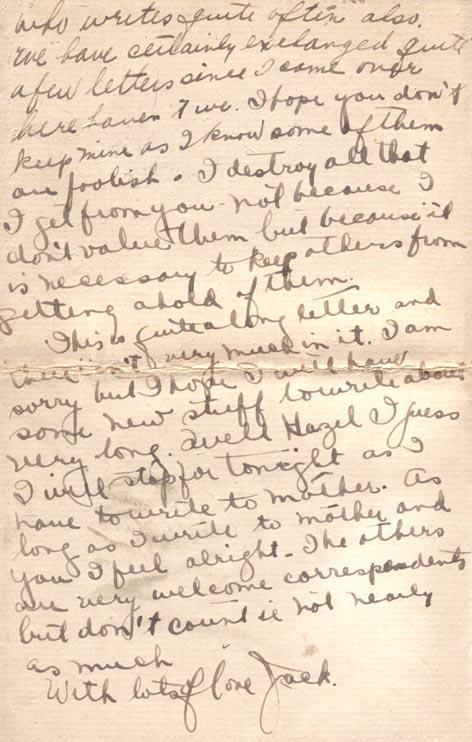 who writes quite often also.
We have certainly exchanged quite
a few letters since I came over
here haven't we. I hope you don't
keep mine as I know some of them
are foolish. I destroy all that
I get from you - not because I
don't value them but because it
is necessary to keep others from
getting ahold of them.
This is quite a long letter and
there isn't very much in it. I am
sorry but I hope I will have
some new stuff to write about
very long. Well Hazel I guess
I will stop for tonight as I
have to write to mother. As
long as I write to mother and
you I feel alright. The others
are very welcome correspondents
but don't count in not nearly
as much
With lots of love Jack.